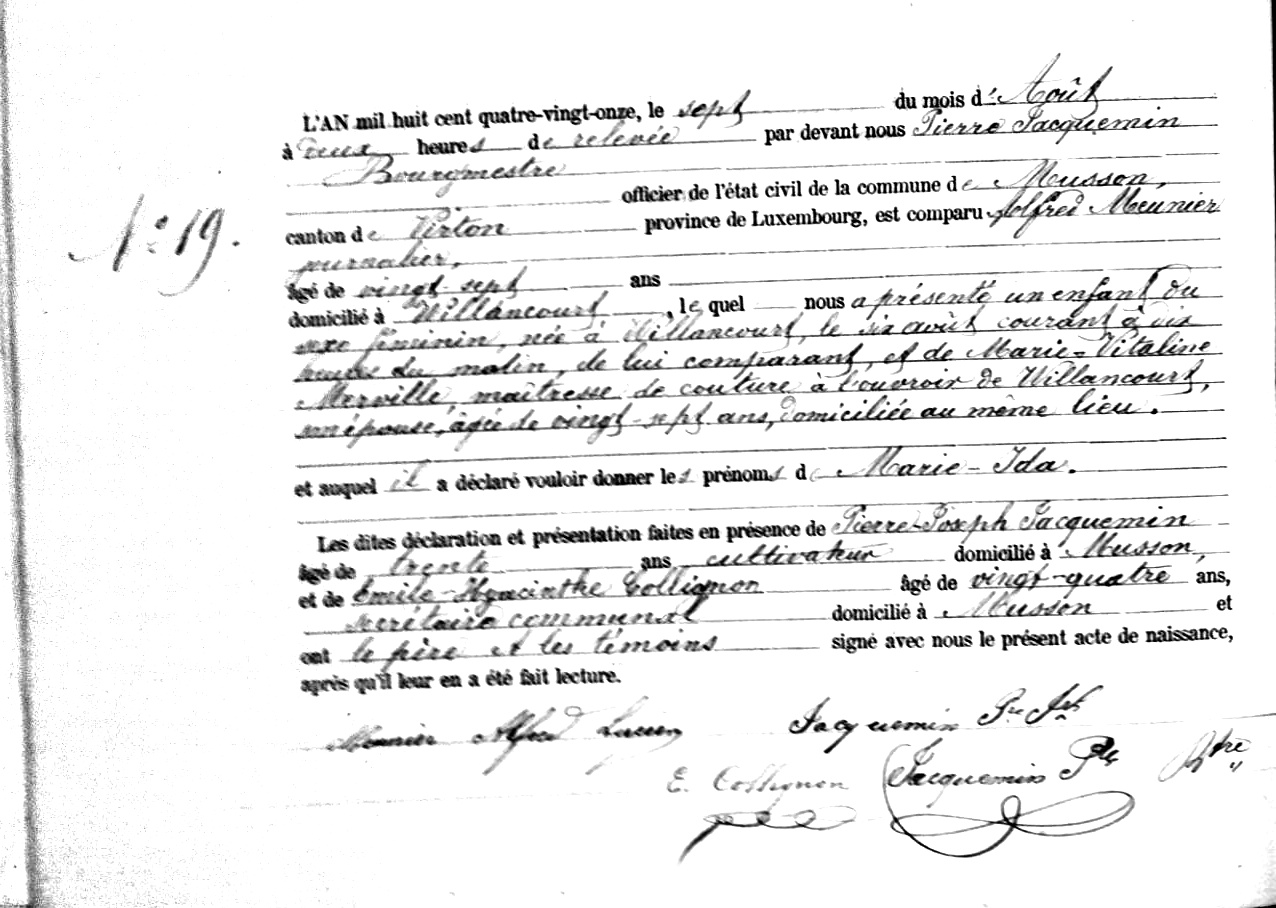 L'AN mil huit cent quatre-vingt-onze, le sept du mois d'Août
à deux heures de relevée par devant nous Pierre Jacquemin
Bourgmestre
officier de l'état civil de la commune de Musson,
N° 19.
canton de Virton province de Luxembourg, est comparu Alfred Meunier
journalier,
âgé de vingt-sept ans
domicilié à Willancourt, lequel nous a présenté un enfant du
sexe féminin, née à Willancourt, le six août courant à dix
heures du matin, de lui comparant, et de Marie-Vitaline
Merville, maîtresse de couture à l'ouvroir de Willancourt,
son épouse, âgée de vingt-sept ans, domiciliée au même lieu.
et auquel il a déclaré vouloir donner les prénoms de Marie-Ida.
Les dites déclaration et présentation faites en présence de Pierre-Joseph Jacquemin
âgé de trente ans cultivateur domicilié à Musson,
et de Emile-Hyacinthe Collignon âgé de vingt-quatre ans,
secrétaire communal domicilié à Musson et
ont le père et les témoins signé avec nous le présent acte de naissance,
après qu'il leur en a été fait lecture.
Meunier Alfred Lucien Jacquemin Pre Jph
E. Collignon Jacquemin Pre Btre